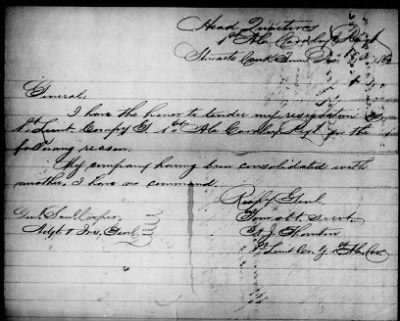 Head Quarters
1st Ala Cavalry Regt
Camp Tenn Dec 18
General
I have the honor to tender my resignation
1st Lieut Comp'y G 1st Ala Cavalry Reg't for the
following reason.
My company having been consolidated with
another, I have no command.
Resply Genl.
Your obt Servt.
Genl Saml Cooper, J. Thornton
Adgt & Ins. Genl. 1st Lieut Co. G 1st Ala Cav.